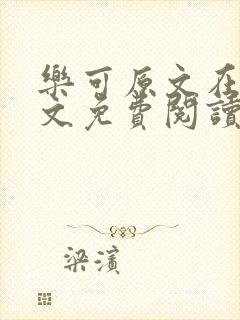 樂可原文在
文免費閱讀
梁濱